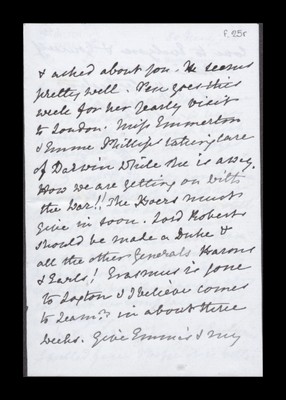 f. 25r
& asked about you. He seems
pretty well. Nen goes this
week for her yearly visit
to London. Miss Emmerton
& Emme Phillips taking care
of Darwin while she is away.
How we are getting on with
the War!! The Boers must
give in soon. Lord Roberts
should be made a Duke &
all the other Generals Barons
& Earls! Erasmus is gone
to Laxton & I believe comes
to Leam: in about three
weeks. Give Emmie & my